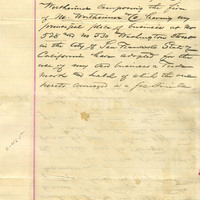 Wertheimer composing the firm
of M. Wertheimer & Co having my
principal place of business at no
528 & no 530 Washington Street
in the City of San Francisco State of
California have adopted for the
use of my said business a Trade
mark or label of which the one
hereto annexed is a fac-simile